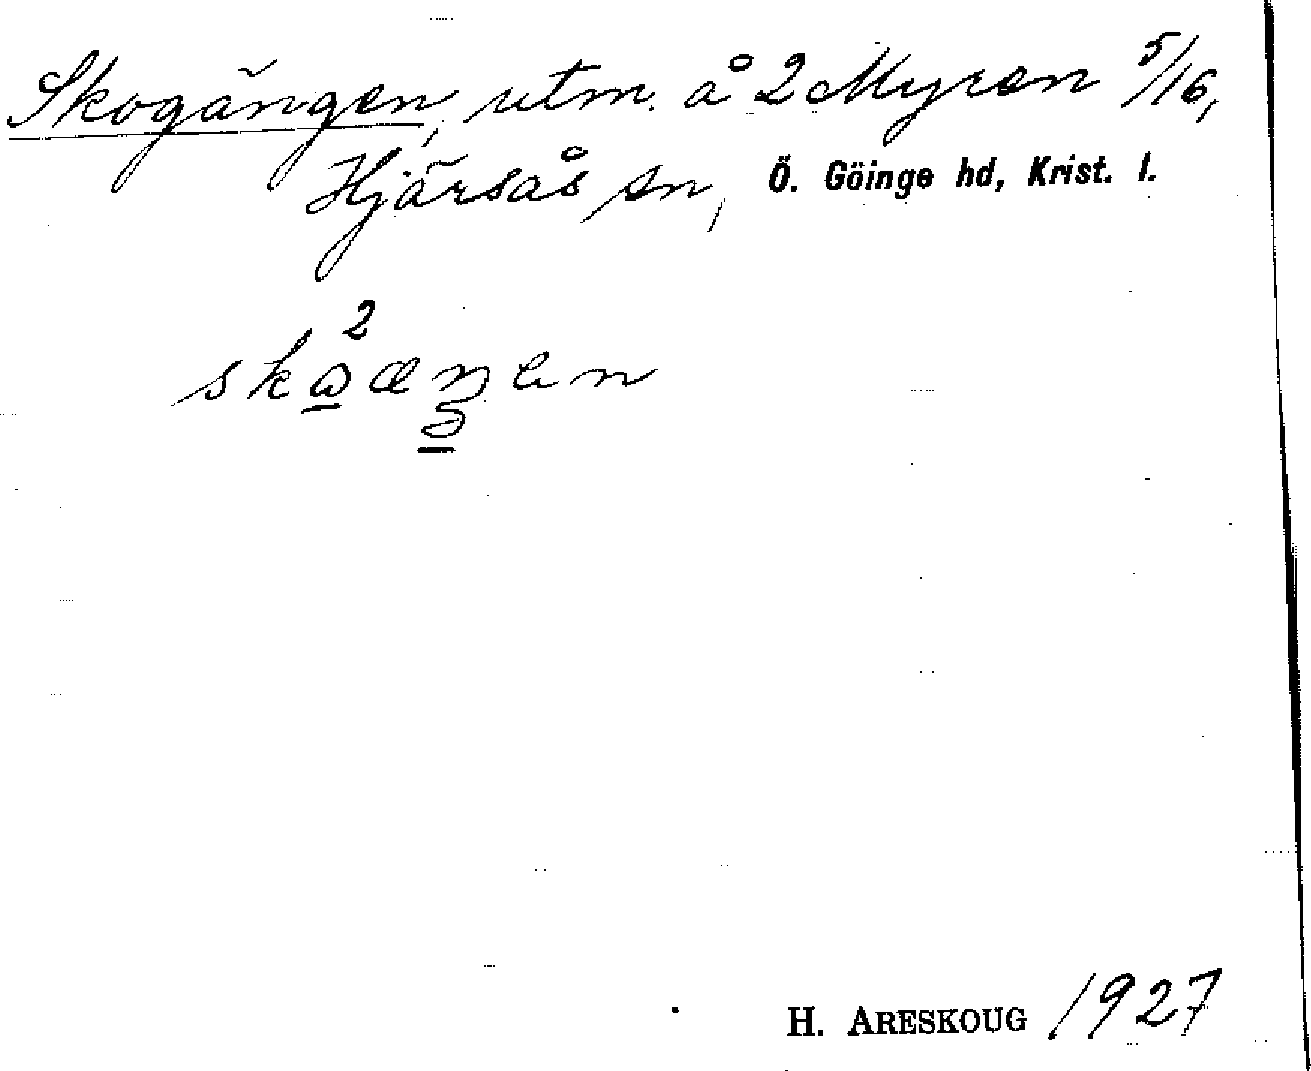 Skogängen, utm. å 2 Myren 5/16,
Hjärsås sn, Ö. Göinge hd, Krist. l.
2
H. ARESKOUG 1927